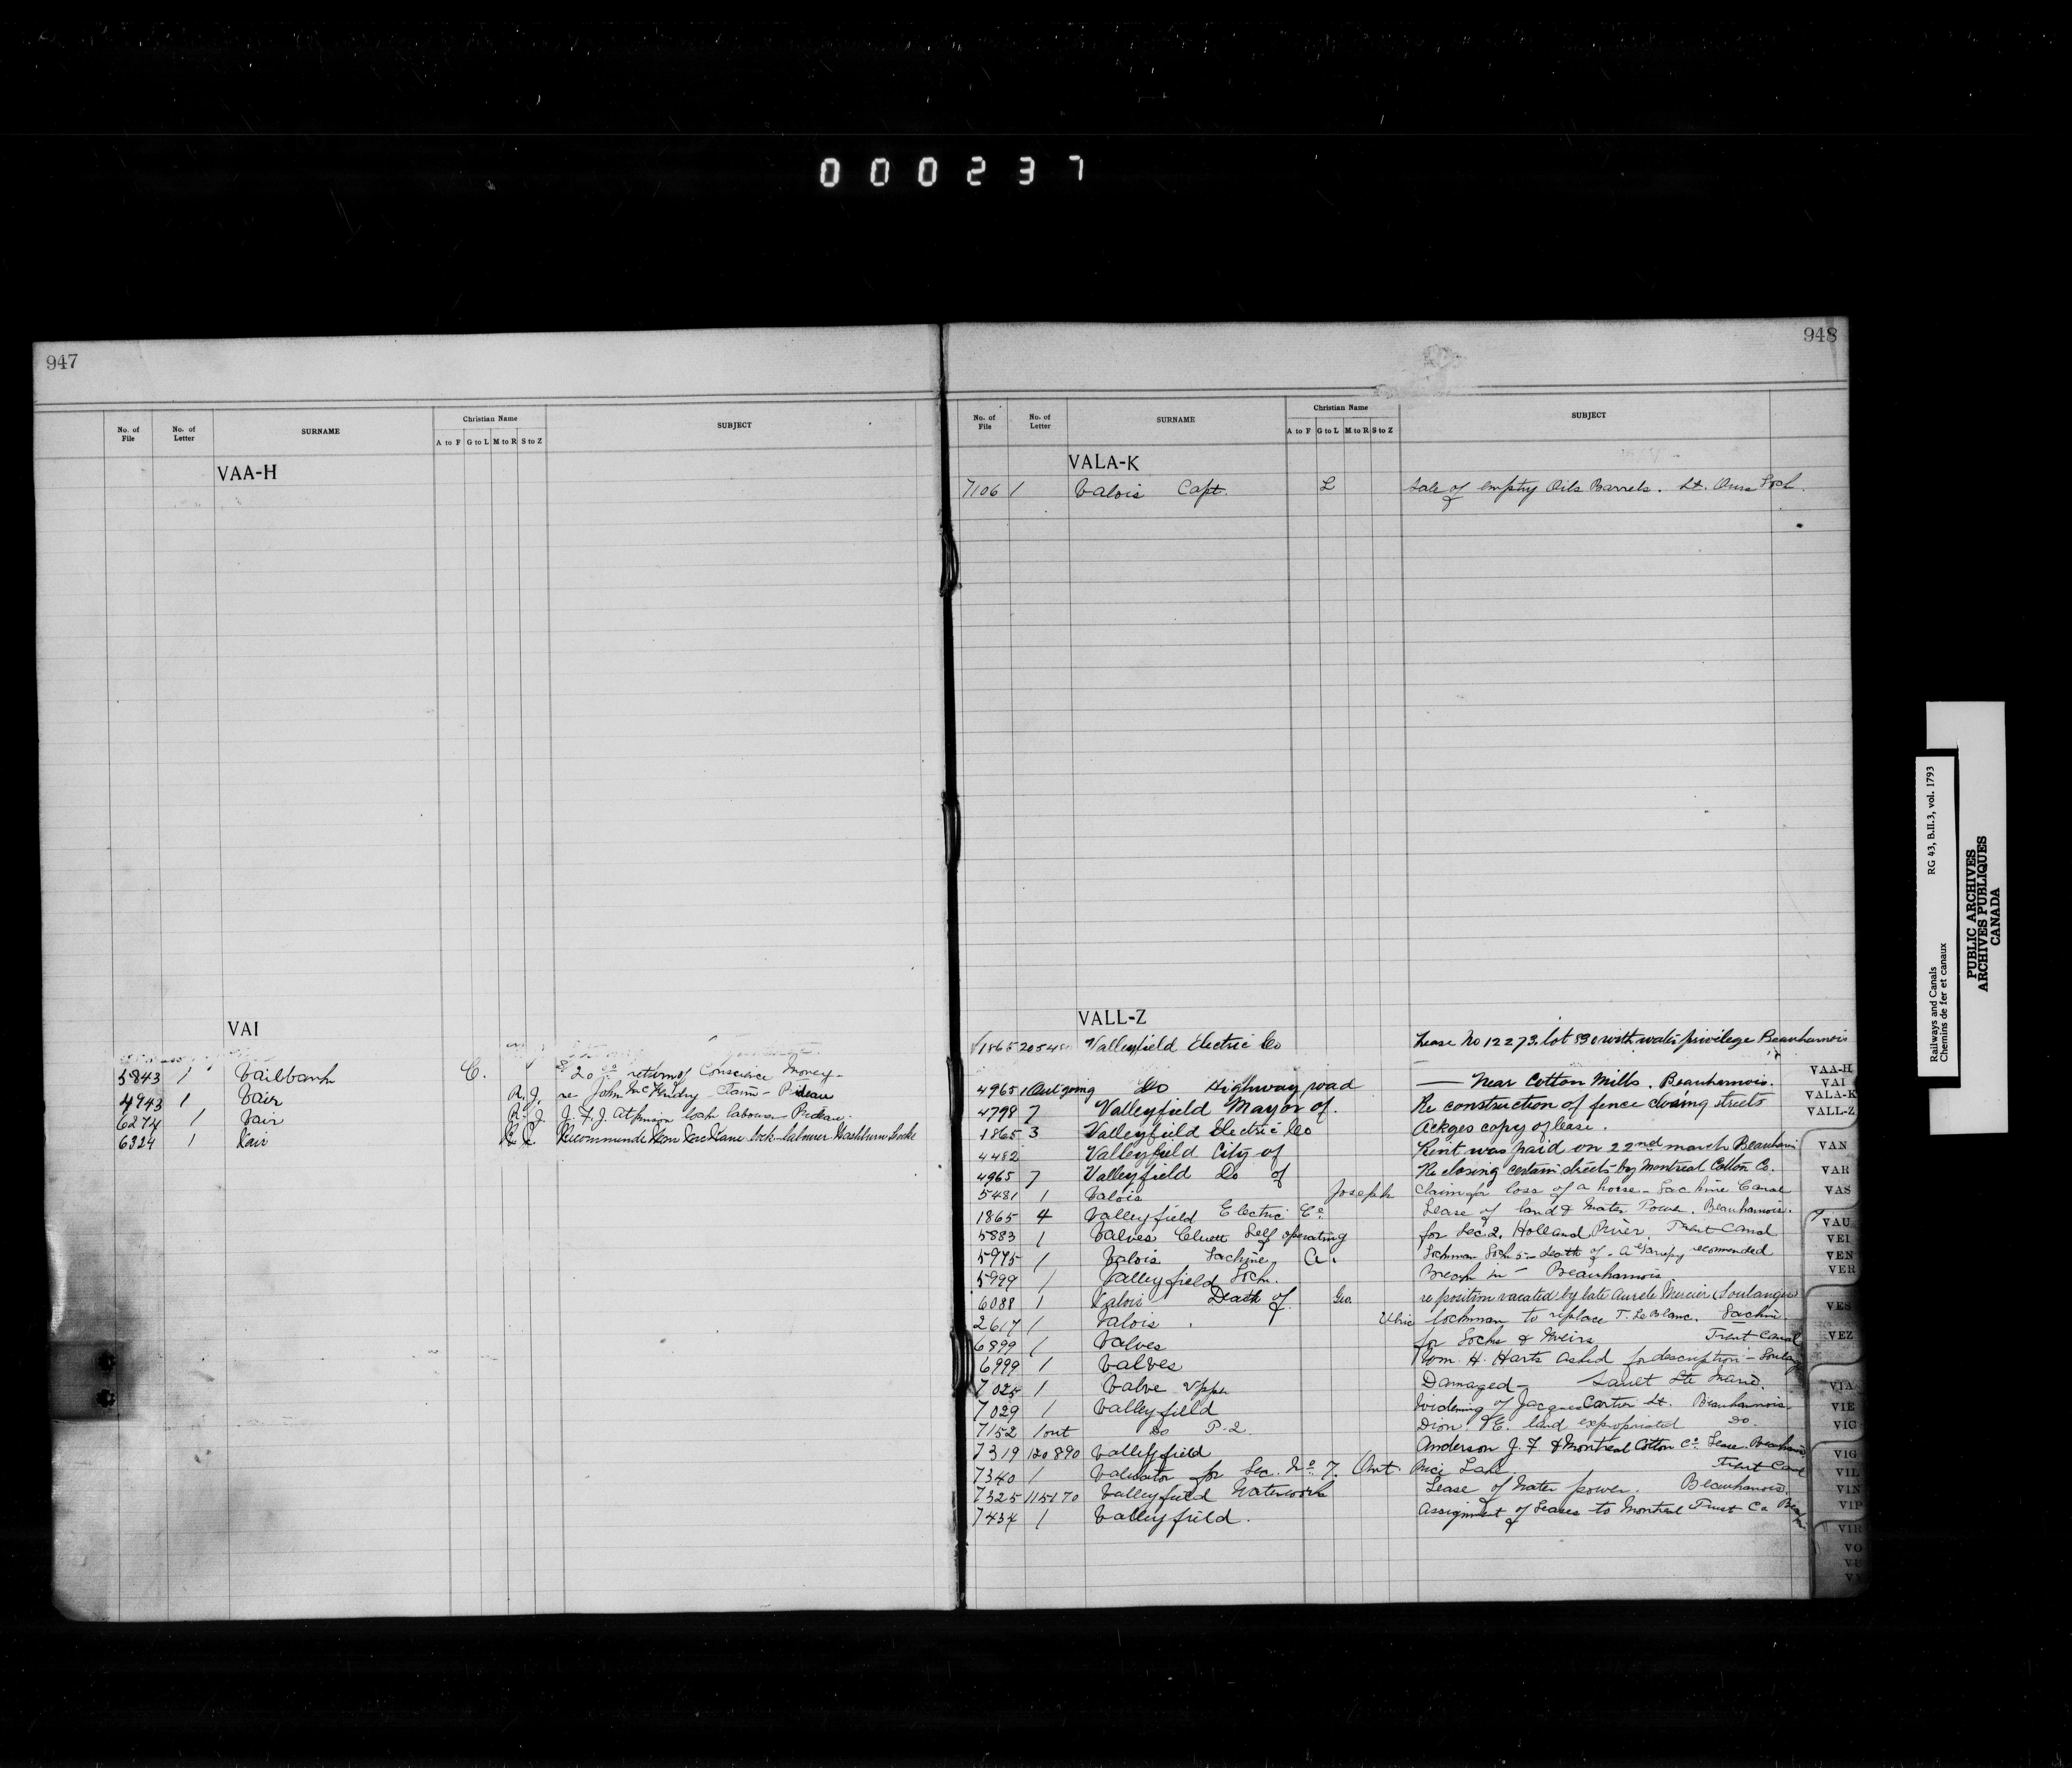 000237
947
No. of File No. of Letter SURNAME Christian Name A to F G to L M to R S to Z SUBJECT
VAA-H
VAI
5843 1 Vailbank C. $20.00 return of Conscience Money-
4943 1 Vair R.J. re- John McKendry Claim - Rideau
6274 1 Vair R.J. J.F.J. Atkinson lock labourer Rideau.
6324 1 Vair Recommends lock-labourer Washburn Locks
948
No. of File No. of Letter SURNAME Christian Name A to F G to L M to R S to Z SUBJECT
VALA-K
7106 1 Valois Capt. L Sale of empty Oils Barrels. St. Ours Lock.
VALL-Z
1865 Valleyfield Electric Co Lease No 12273, lot 890 with water privilege Beauharnois
4965 1 Outgoing Do Highway road — Near Cotton Mills. Beauharnois.
4798 7 Valleyfield Mayor of. Re construction of fence closing streets
1865 3 Valleyfield Electric Co Ackges copy of lease.
4482 Valleyfield City of Rent was paid on 22nd march
4965 7 Valleyfield Do of Re closing certain streets by Montreal Cotton Co.
5481 1 Valois Joseph Claim for loss of a horse - Lachine Canal
1865 4 Valleyfield Electric Co Lease of land & Water Power. Beauharnois.
5883 1 Valves Self operating for Sec 2, Holland River. Trent Canal
5975 1 Valois Lachine A. Lockman Lock 5 - death of - recommended
5999 1 Valleyfield Lock. Break in - Beauharnois
6088 1 Valois Death of Geo. re position vacated by late Aurele Mercier (Soulanges)
2617 1 Valois Ulric lockman to replace T. LeBlanc. Lachine
6899 1 Valves for Locks & Weirs Trent Canal
6999 1 Valves Wm. H. Harts asked for description -
7025 1 Valve Upper Damaged - Sault Ste Marie.
7029 1 Valleyfield Widening of Jacques Cartier St. Beauharnois.
7152 1 out Do P-2 Dion, E. land expropriated Do.
7319 120890 Valleyfield Anderson J. F. & Montreal Cotton Co. Lease.
7340 1 Valuator for Sec. No 7. Ont. Rice Lake Trent Canal
7325 115170 Valleyfield Waterworks Lease of Water power. Beauharnois.
7434 1 Valleyfield. Assignment of Leases to Montreal Trust Co
VAA-H
VAI
VALA-K
VALL-Z
VAN
VAR
VAS
VAU
VEI
VEN
VER
VES
VEZ
VIA
VIE
VIG
VIL
VIN
VIP
VIR
VO
Railways and Canals RG 43, B.II.3, vol. 1793
Chemins de fer et canaux
PUBLIC ARCHIVES
ARCHIVES PUBLIQUES
CANADA